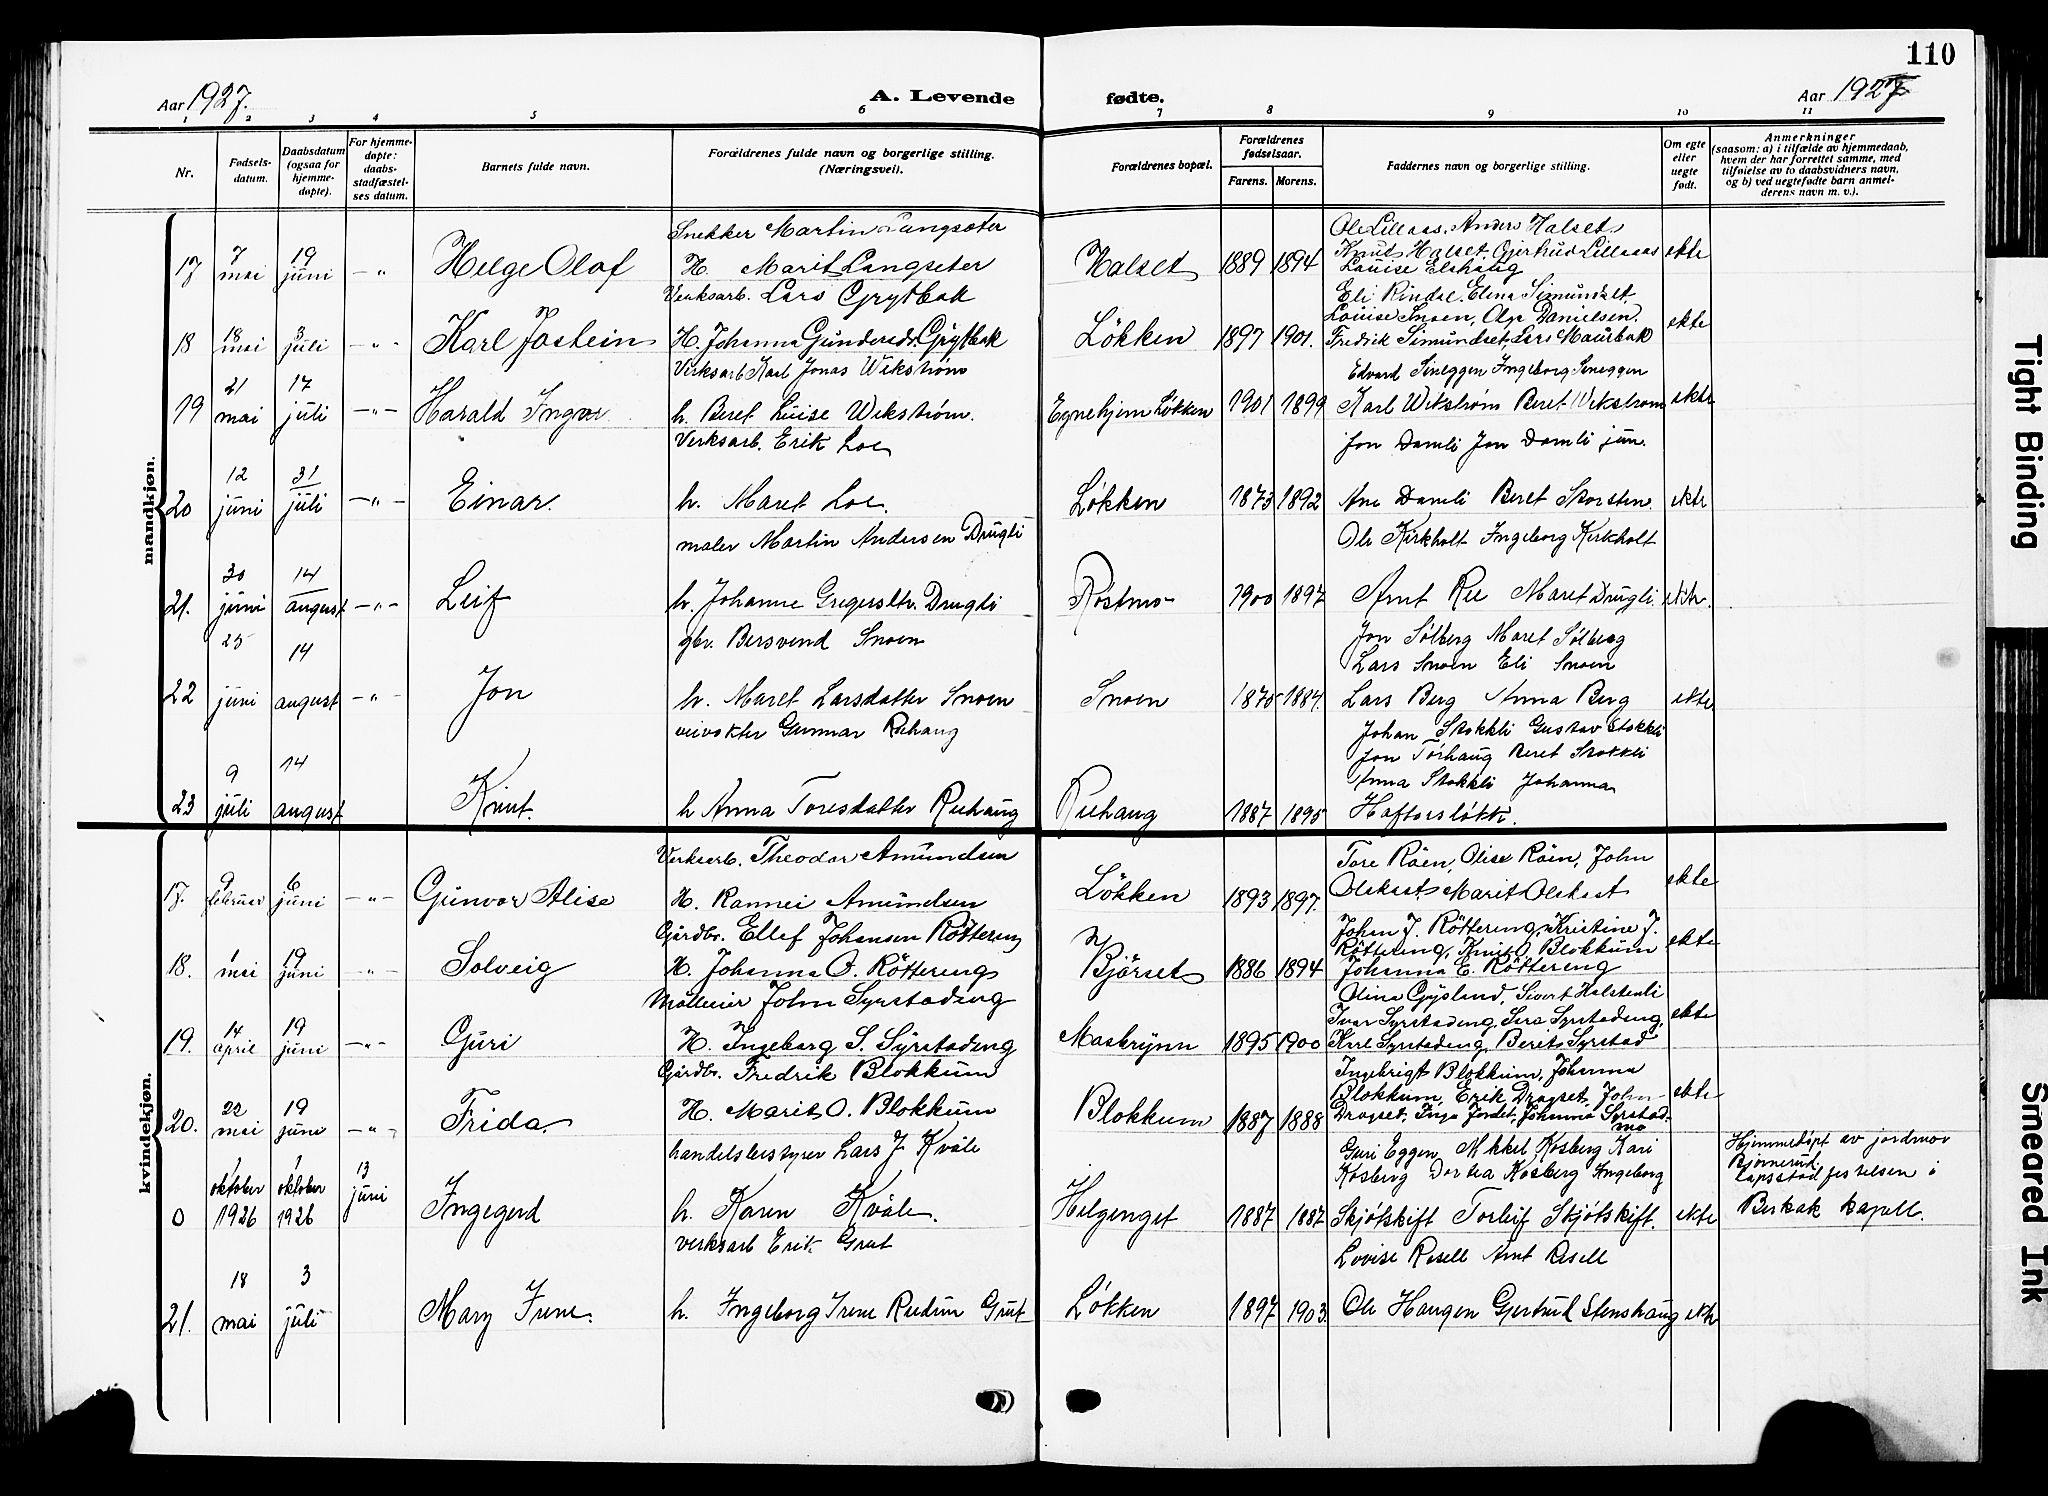 110
Aar 1927. A. Levende fødte. Aar 1927
1 2 3 4 5 6 7 8 9 10 11
Nr. Fødsels-datum. Daabsdatum (ogsaa for hjemme-døpte). For hjemme-døpte: daabs-stadfæstel-ses datum. Barnets fulde navn. Forældrenes fulde navn og borgerlige stilling. (Næringsvei). Forældrenes bopæl. Forældrenes fødselsaar. Farens. Morens. Faddernes navn og borgerlige stilling. Om egte eller uegte født. Anmerkninger (saasom: a) i tilfælde av hjemmedaab, hvem der har forrettet samme, med tilføielse av to daabsvidners navn, og b) ved uegtefødte barn anmel-derens navn m. v.).
mandkjøn.
Snekker Martin Langsæter Ole Lillaas. Anders Halset
17 7 mai 19 juni – " Helge Olaf H. Marit Langseter Halset 1889 1894 Knud Halset. Gjertrud Lillaas ekte
Louise Elshaug
Verksarb. Lars Grytbak Eli Rindal. Elena Simundset.
Louise Snoen, Olga Danielsen.
18 18 mai 3 juli – " – Karl Jostein H. Johanna Gundersdt. Grytbak Løkken 1897 1901. Fredrik Simundset, Lars Maurbak ekte
Verksarb Karl Jonas Wikstrøm Edvard Sineggen Ingeborg Sineggen
19 21 mai 17 juli – " – Harald Ingvar h. Beret Luise Wikstrøm. Egnehjem Løkken 1901 1899 Karl Wikstrøm Beret Wikstrøm ekte
Verksarb. Erik Loe Jon Damli Jon Damli jun.
20 12 juni 31 juli – " – Einar. h. Maret Loe. Løkken 1873 1892 Ane Damli Beret Storsten. ekte
maler Martin Andersen Drugli Ole Kirkholt Ingeborg Kirkholt
21. 30 juni 14 august – " – Leif h. Johanne Gregersdtr. Drugli Røstmo 1900 1897 Arnt Ree Maret Drugli. ekte.
gbr. Bersvend Snoen Jon Sølberg Maret Sølberg
Lars Snoen Eli Snoen
22 25 juni 14 august – " – Jon h. Maret Larsdatter Snoen Snoen 1875 1884. Lars Berg Anna Berg ekte
veivokter Gunnar Ruhaug Johan Stokkli Gustav Stokkli
Jon Torhaug Beret Stokkli
Anna Stokkli Johanna
23 9 juli 14 august Knut. h Anna Toresdatter Ruhaug Ruhaug 1887 1895 Haftorsløkk.
kvindekjøn.
Verksarb. Theodor Amundsen Tore Røen, Olise Røen, John
17. 9 februar 6 juni – " – Gunvor Alise H. Rannei Amundsen Løkken 1893 1897. Olskast Marit Olskast ekte
Gårdbr. Ellef Johansen Røttereng Johan J. Røttereng, Kristine J.
Røttereng, Knut O. Blokkum
18. 1 mai 19 juni – " – Solveig H. Johanna O. Røttereng Bjørset 1886 1894 Johanna E. Røttereng ekte
Møllerier John Syrstadeng Olina Gysland, Sivert Halstenli
Ivar Syrstadeng, Sira Syrstadeng,
19. 14 april 19 juni – " – Guri H. Ingeborg S. Syrstadeng Moskrynn 1895 1900 Karl Syrstadeng, Berit Syrstad ekte
Gårdbr. Fredrik Blokkum Ingebrigt Blokkum, Johanna
Blokkum, Erik Dragset, John
20. 22 mai 19 juni – " – Frida. H. Marit O. Blokkum Blokkum 1887 1888 Dragset, Inga Jodet, Johanna Syrstad mo ekte
handelsbestyrer Lars J Kvåle Guri Eggen Mikkel Kosberg Kari
Kosberg Dortea Kosberg Ingeborg
0 1 oktober 1926 1 oktober 1926 13 juni Ingegerd h. Karen Kvåle. Helgenget 1887 1887 Skjøtskift Torleif Skjøtskift. ekte Hjemmedøpt av jordmor Bjørnerud. Dåpsstadfestelsen i Berkåk kapell.
verksarb Erik Grut Lovise Resell Arnt Resell
21. 18 mai 3 juli Mary Irene. h. Ingeborg Irene Rudun Grut Løkken 1897 1903. Ole Haugen Gjertrud Stenshaug ekte
Tight Binding
Smeared Ink